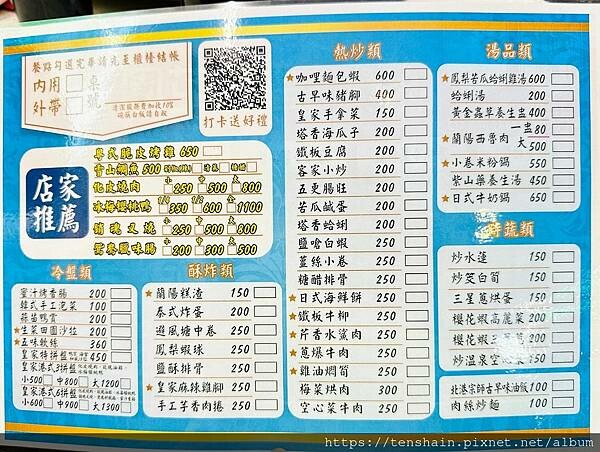 餐點勾選完畢請先至櫃檯結帳
內用 桌
外帶 號
清潔服務費加收10%
碗筷白飯請自取
打卡送好禮
店家推薦
粵式脆皮烤雞 650
青山燜魚 500
化皮燒肉 小 250 中 500 大 800
冰梅櫻桃鴨 1/3 350 1/2 600 全 1100
銷魂叉燒 小 250 中 500 大 800
蜜汁臘味腸 小 200 中 300 大 500
冷盤類
蜜汁烤香腸 200
韓式手工泡菜 100
蒜苗鴨賞 200
★生菜田園沙拉 200
★五味軟絲 360
★皇家特拼盤 450
皇家港式3拼盤
小500 中800 大1200
皇家港式6拼盤
小600 中900 大1300
酥炸類
★蘭陽糕渣 150
泰式炸蛋 200
避風塘中卷 250
鳳梨蝦球 250
鹽酥排骨 250
★皇家麻辣雞腳 250
手工芋香肉捲 250
熱炒類
★咖哩麵包蝦 600
古早味豬腳 400
皇家手拿菜 150
塔香海瓜子 200
鐵板豆腐 200
客家小炒 200
五更腸旺 200
苦瓜鹹蛋 200
塔香蛤蜊 200
鹽嗆白蝦 250
薑絲小卷 250
糖醋排骨 250
★日式海鮮餅 250
★鐵板牛柳 250
★芹香水鯊肉 250
★蔥爆牛肉 250
★雞油燜筍 250
梅菜烘肉 300
空心菜牛肉 250
湯品類
★鳳梨苦瓜蛤蜊雞湯 600
蛤蜊湯 200
黃金蟲草養生盅 400
★蘭陽西魯肉 一盅 80
大 500
★小卷米粉鍋 550
紫山藥養生湯 450
★日式牛奶鍋 650
時蔬類
炒水蓮 150
炒筊白筍 150
三星蔥烘蛋 150
櫻花蝦高麗菜 200
櫻花蝦三星蔥 200
炒溫泉空心菜 150
北港宗師古早味油飯 100
肉絲炒麵 100
https://tenshain.pixnet.net/album